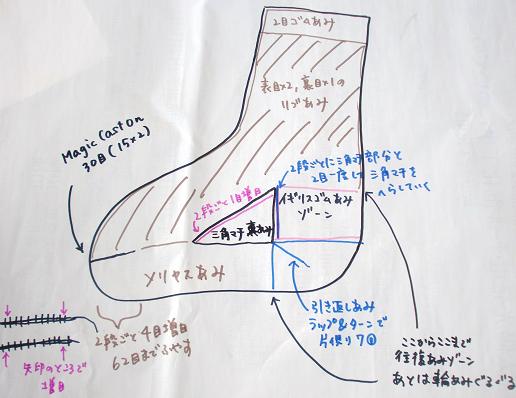 2目ゴムあみ
表目×2, 裏目×1の
リブあみ
Magic Cast on
30目(15×2)
2段ごとに三角マチ部分と
2目一度して三角マチを
へらしていく
2段ごと1目増目
イギリスゴムあみ
ゾーン
三角マチ 裏あみ
メリヤスあみ
2段ごと4目増目
62目までふやす
矢印のところで
増目
引き返しあみ
ラップ&ターンで
片側17目
ここからここまで
往復あみゾーン
あとは輪あみぐるぐる